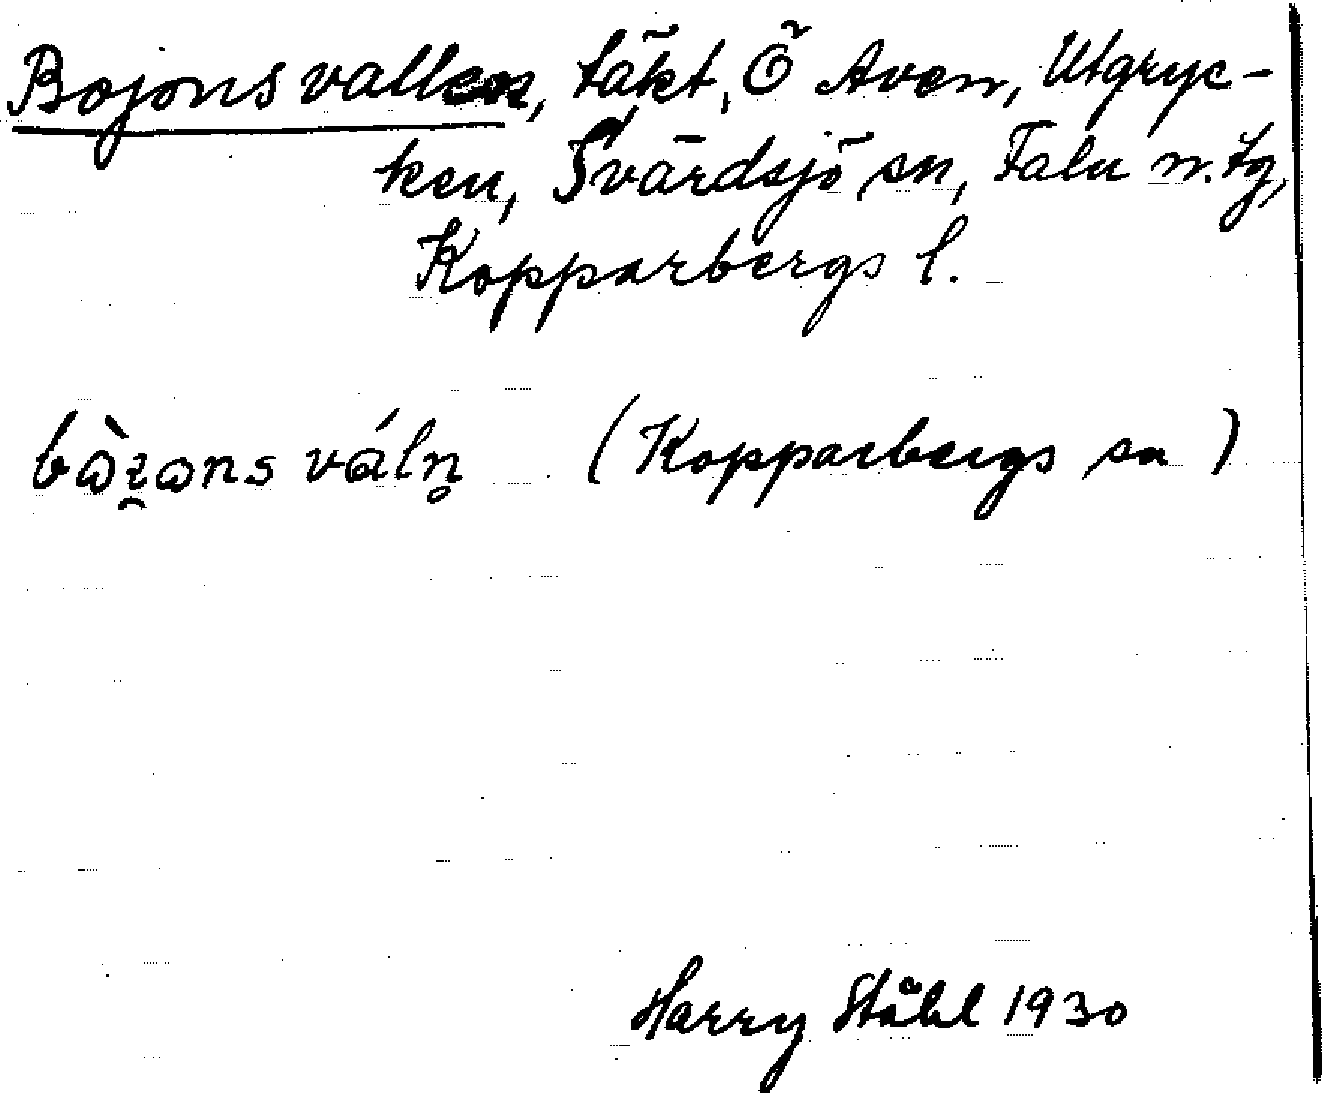 Bojonsvallen, täkt, Ö Aven, Utgryc-
ken, Svärdsjö sn, Falu n. tg,
Kopparbergs l.
bòi̯ons váln̥ (Kopparbergs sn)
Harry Ståhl 1930